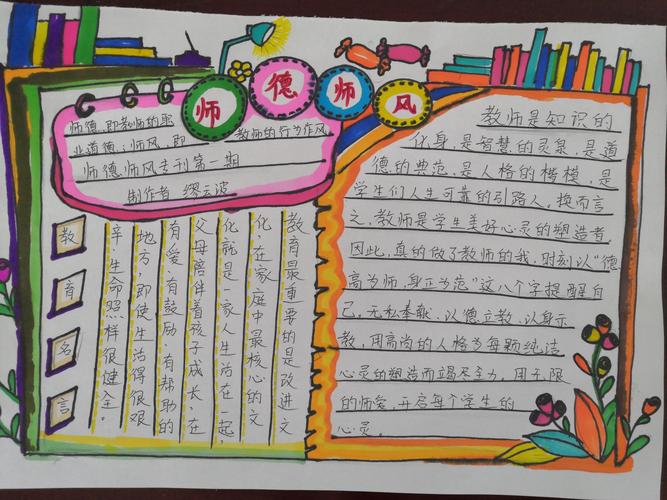 师德师风
师德,即教师的职
业道德;师风,即 教师的行为作风
师德师风专刊第一期
制作者 缪云波
教育名言
教育最重要的是改进文
化,在家庭中最核心的文
化就是一家人生活在一起,
父母陪伴着孩子成长,在
有爱、有鼓励、有帮助的
地方,即使生活得很艰
辛,生命照样很健全。
教师是知识的
化身,是智慧的灵泉,是道
德的典范,是人格的楷模,是
学生们人生可靠的引路人,换而言
之,教师是学生美好心灵的塑造者
因此,真的做了教师的我,时刻以“德
高为师,身正为范”这八个字提醒自
己,无私奉献、以德立教、以身示
教,用高尚的人格为每颗纯洁
心灵的塑造而竭尽全力,用无限
的师爱,开启每个学生的
心灵。